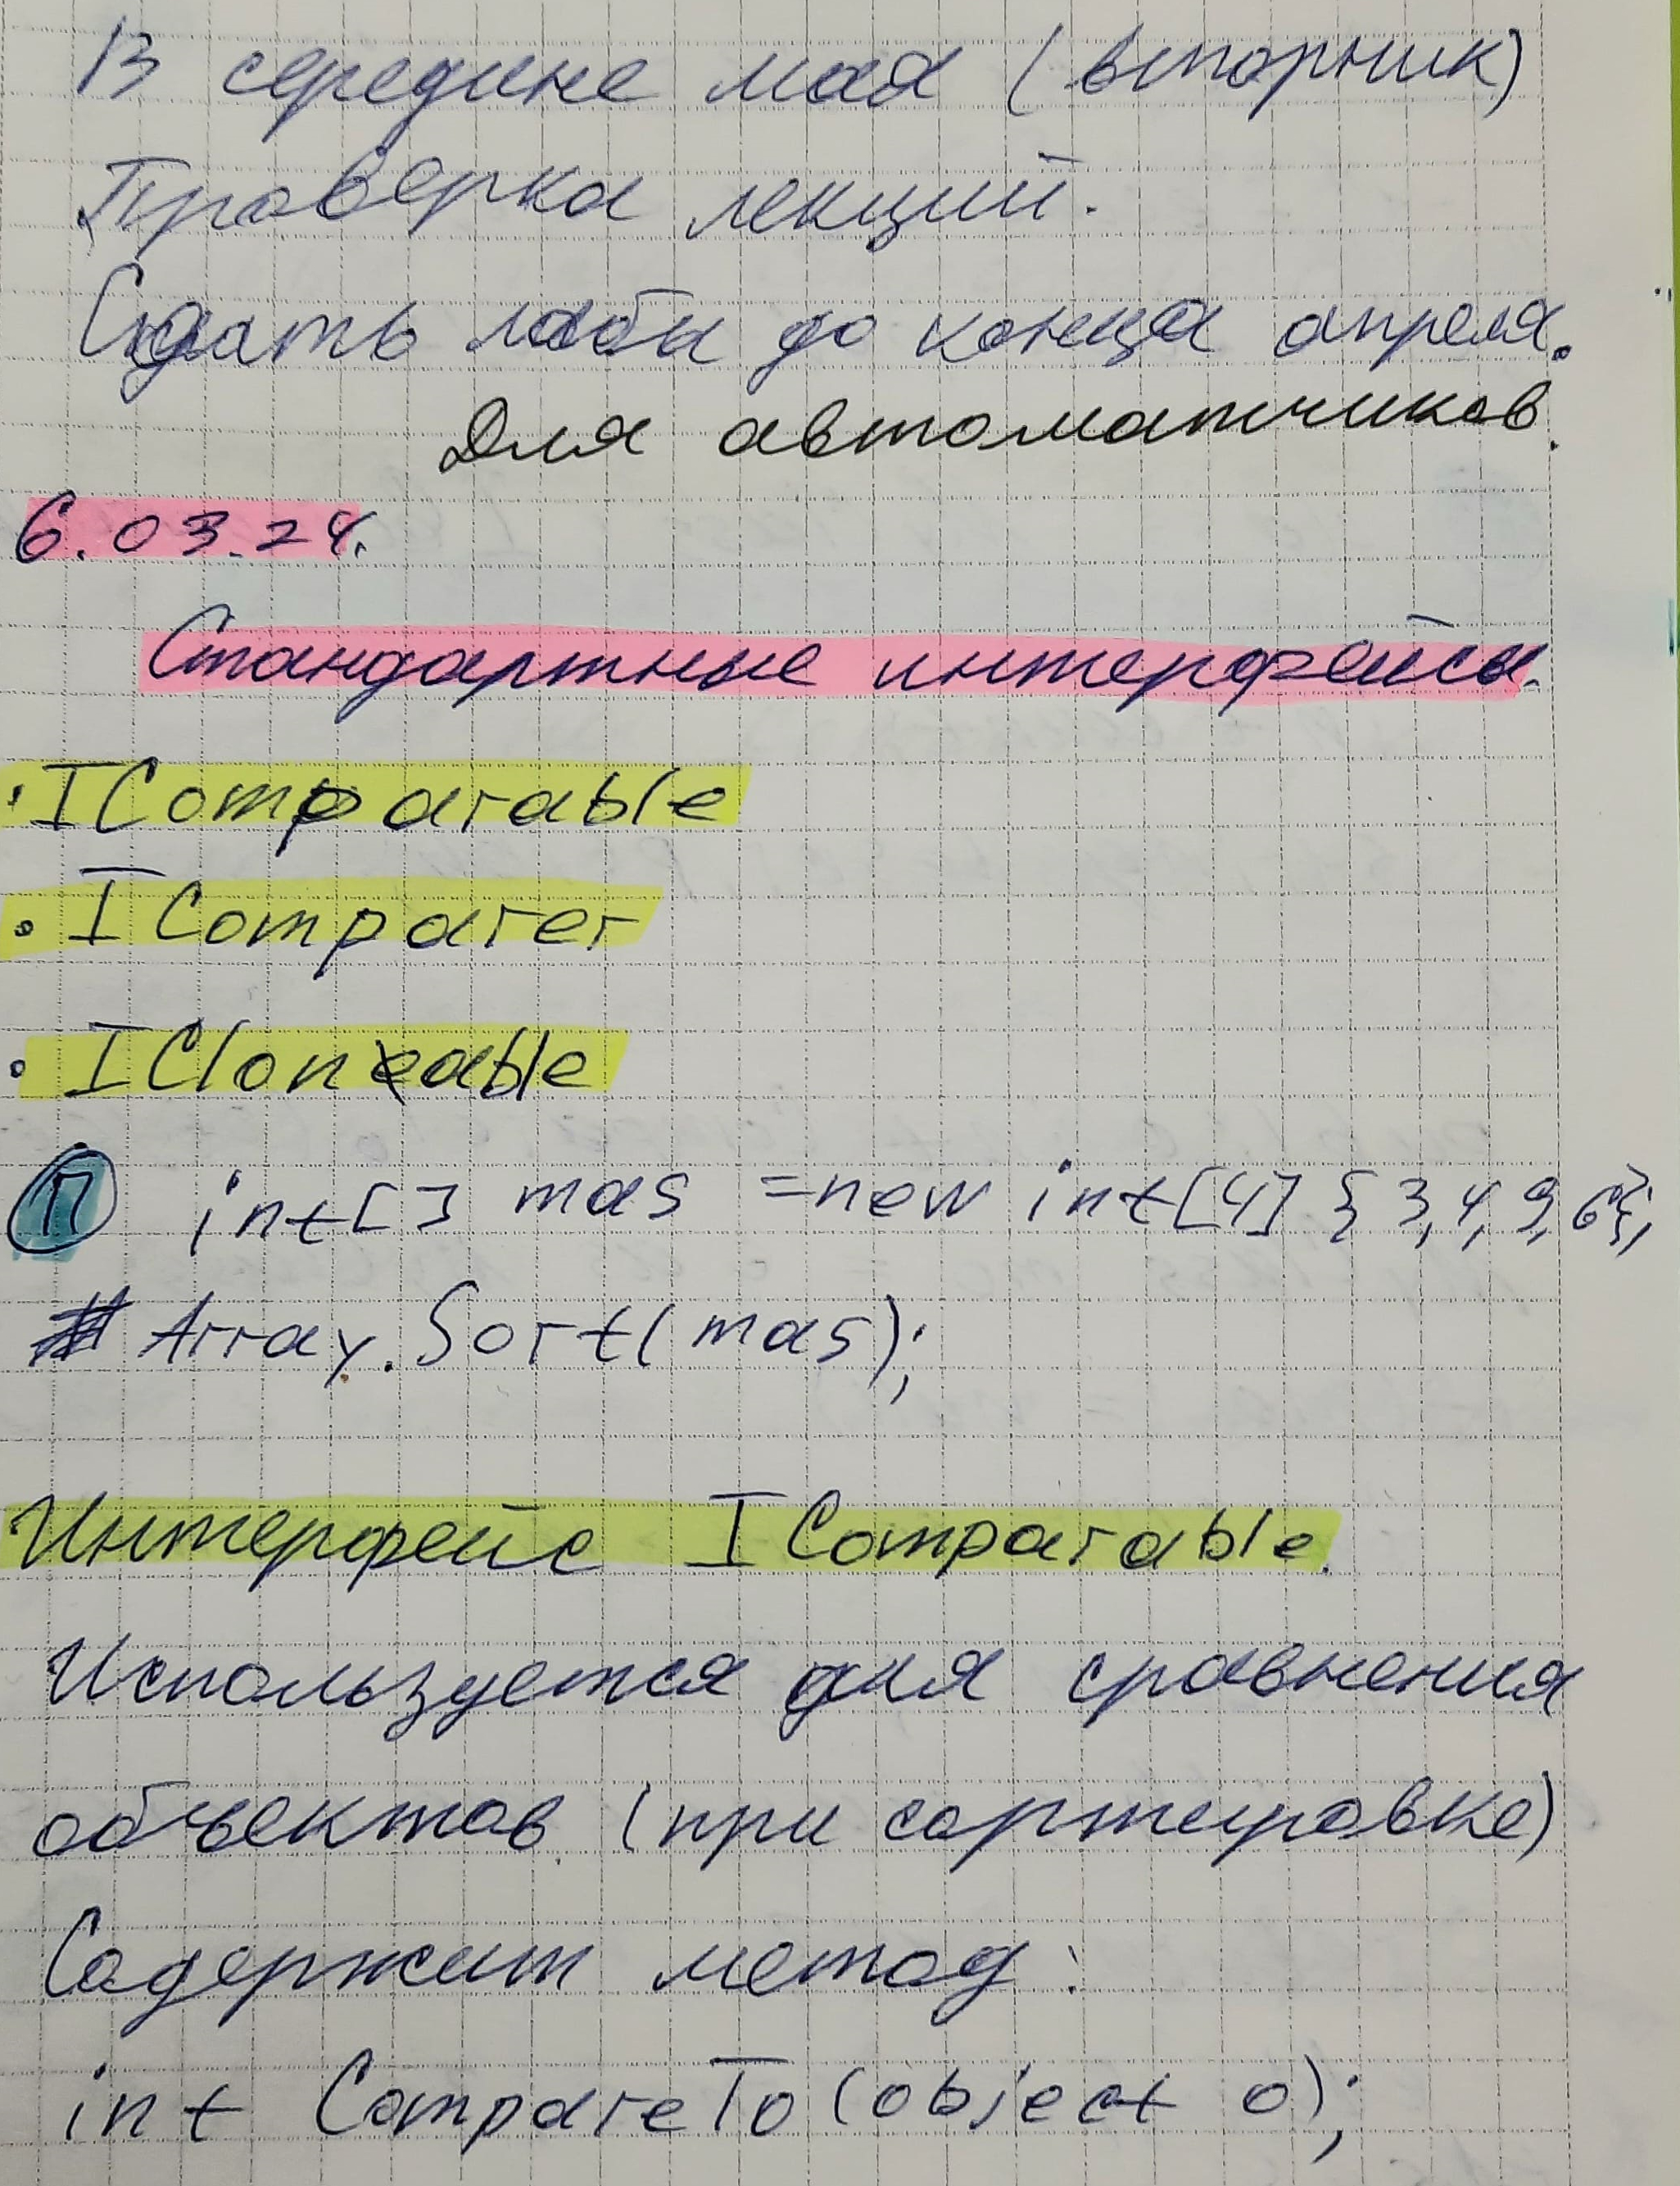 В середине мая (вторник)
Проверка лекций.
Сдать лабы до конца апреля.
Для автоматчиков.
6.03.24.
Стандартные интерфейсы.
• IComparable
• IComparer
• ICloneable
П int[] mas = new int[4] { 3, 4, 9, 6};
Array.Sort(mas);
Интерфейс IComparable.
Используется для сравнения
объектов (при сортировке)
Содержит метод:
int CompareTo (object o);